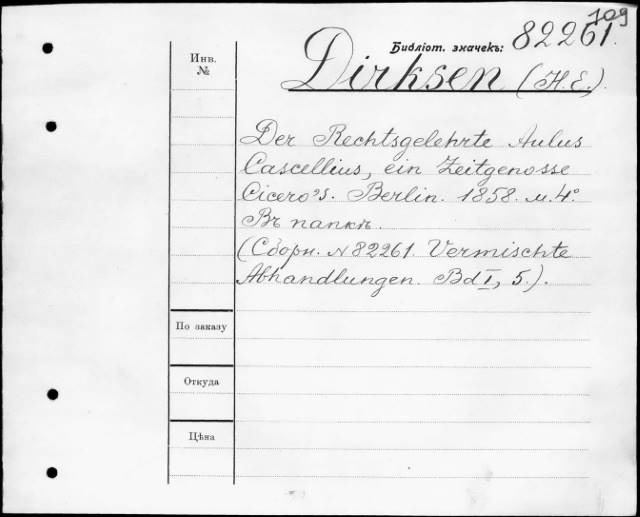 109
Библіот. значекъ: 82261.
Инв.
№
Dirksen (H. E.).
Der Rechtsgelehrte Aulus
Cascellius, ein Zeitgenosse
Cicero's. Berlin. 1858. м. 4°
Въ папкѣ.
(Сборн. № 82261. Vermischte
Abhandlungen. Bd I, 5.).
По заказу
Откуда
Цѣна